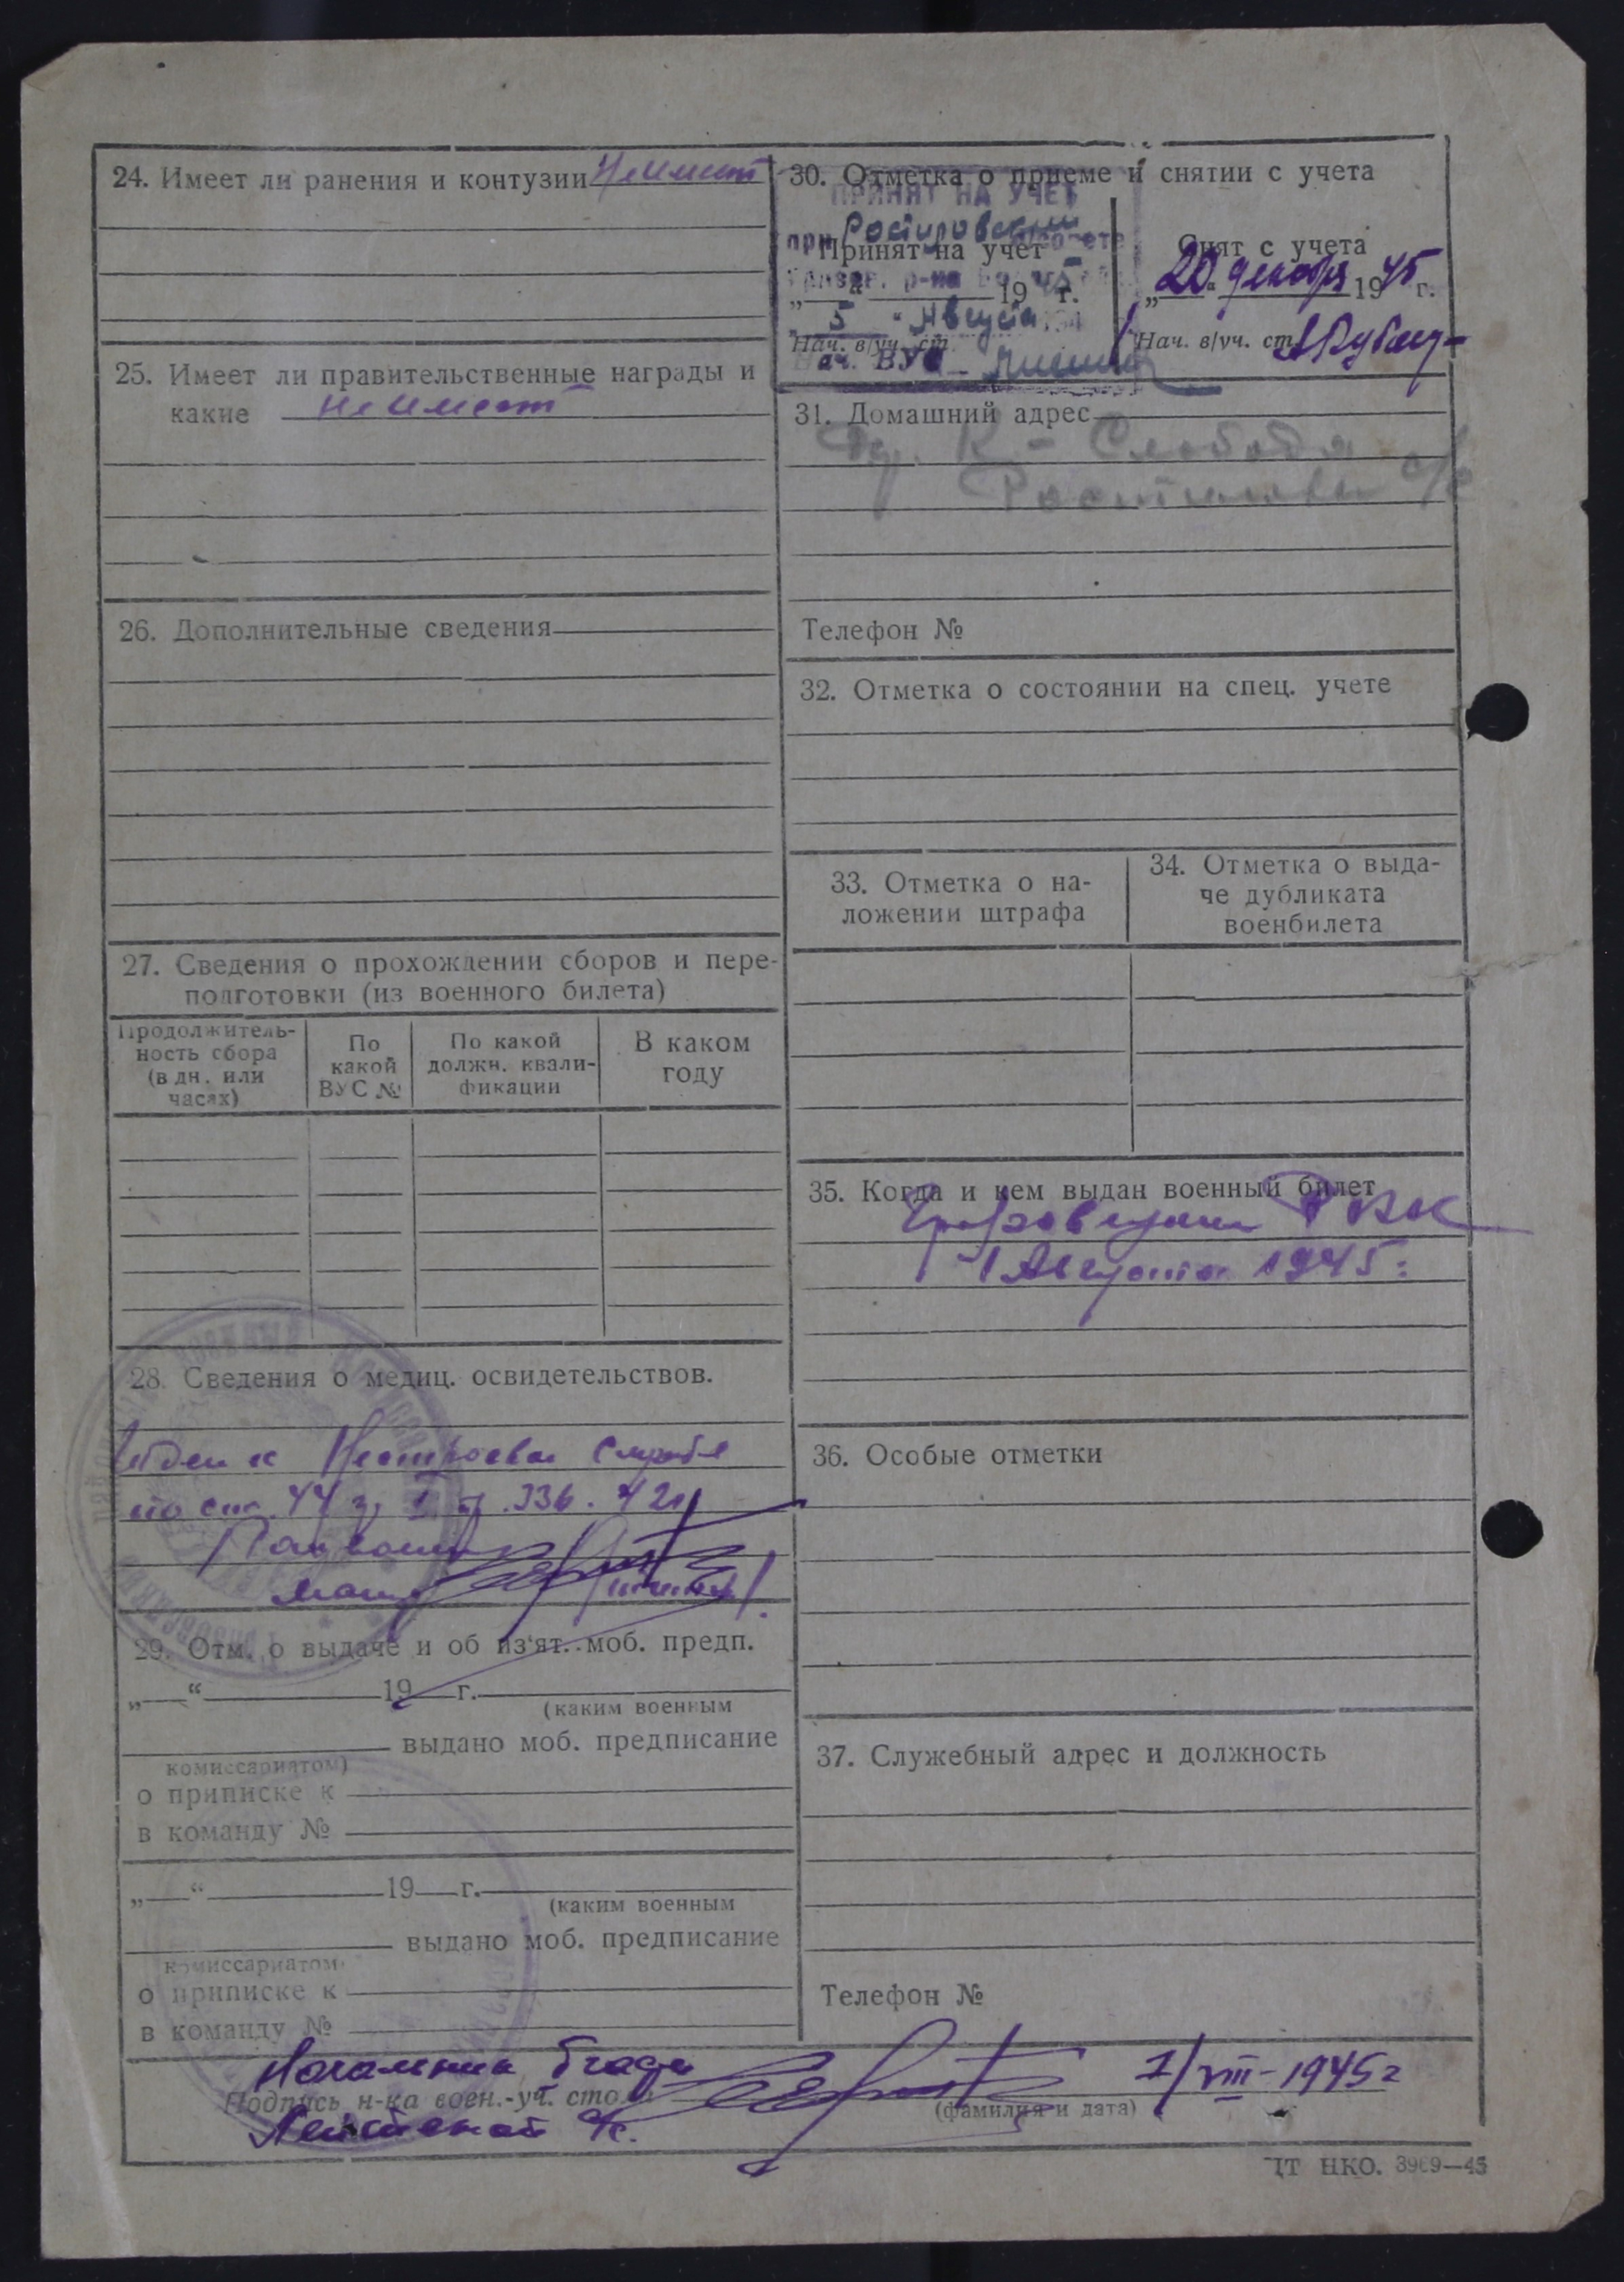 24. Имеет ли ранения и контузии Не имеет
25. Имеет ли правительственные награды и
какие не имеет
26. Дополнительные сведения
27. Сведения о прохождении сборов и пере-
подготовки (из военного билета)
Продолжитель-
ность сбора
(в дн. или
часях)
По
какой
ВУС №
По какой
должн. квали-
фикации
В каком
году
28. Сведения о медиц. освидетельствов.
Годен к Нестроевой Службе
по ст. 44 гр I пр. 336. 42г
29. Отм. о выдаче и об из'ят. моб. предп.
„ “ 19 г.
(каким военным
выдано моб. предписание
комиссариатом)
о приписке к
в команду №
„ “ 19 г.
(каким военным
выдано моб. предписание
комиссариатом
о приписке к
в команду №
30. Отметка о приеме и снятии с учета
ПРИНЯТ НА УЧЕТ
при
Принят на учет
„ “ 19 г.
5 " Августа 194
Нач. в/уч. ст.
Нач. ВУС
Снят с учета
„20 “ декабря 1945 г.
Нач. в/уч. ст.
31. Домашний адрес
К - Слобода
с/с
Телефон №
32. Отметка о состоянии на спец. учете
33. Отметка о на-
ложении штрафа
34. Отметка о выда-
че дубликата
военбилета
35. Когда и кем выдан военный билет
РВК
1 Августа 1945 г
36. Особые отметки
37. Служебный адрес и должность
Телефон №
Начальник
Подпись н-ка воен.-уч. стола
Лейтенант
1/VIII-1945г
(фамилия и дата)
ЦТ НКО. 3969—45